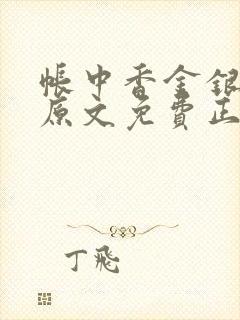 帳中香金銀
原文免費正
丁飛